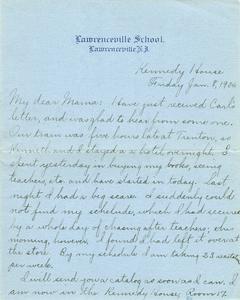 Lawrenceville School.
Lawrenceville N.J.
Kennedy House
Friday Jan. 8, 190
My dear Mama: I have just recived Carl's
letter, and was glad to hear from some one.
Our train was five hours late at Trenton, so
Kenneth and I stayed at a hotel overnight. I
spent yesterday in buying my books, seeing
teachers, etc. and have started in today. Last
night I had a big scare. I suddenly could
not find my schelude, which I had secured
by a whole day of chasing after teachers; this
morning, however, I found I had left it over at
the store. By my schedule I am taking 23 
per week.
I will send you a catalog as soon as I can. I
am now in the Kennedy House, Room 17